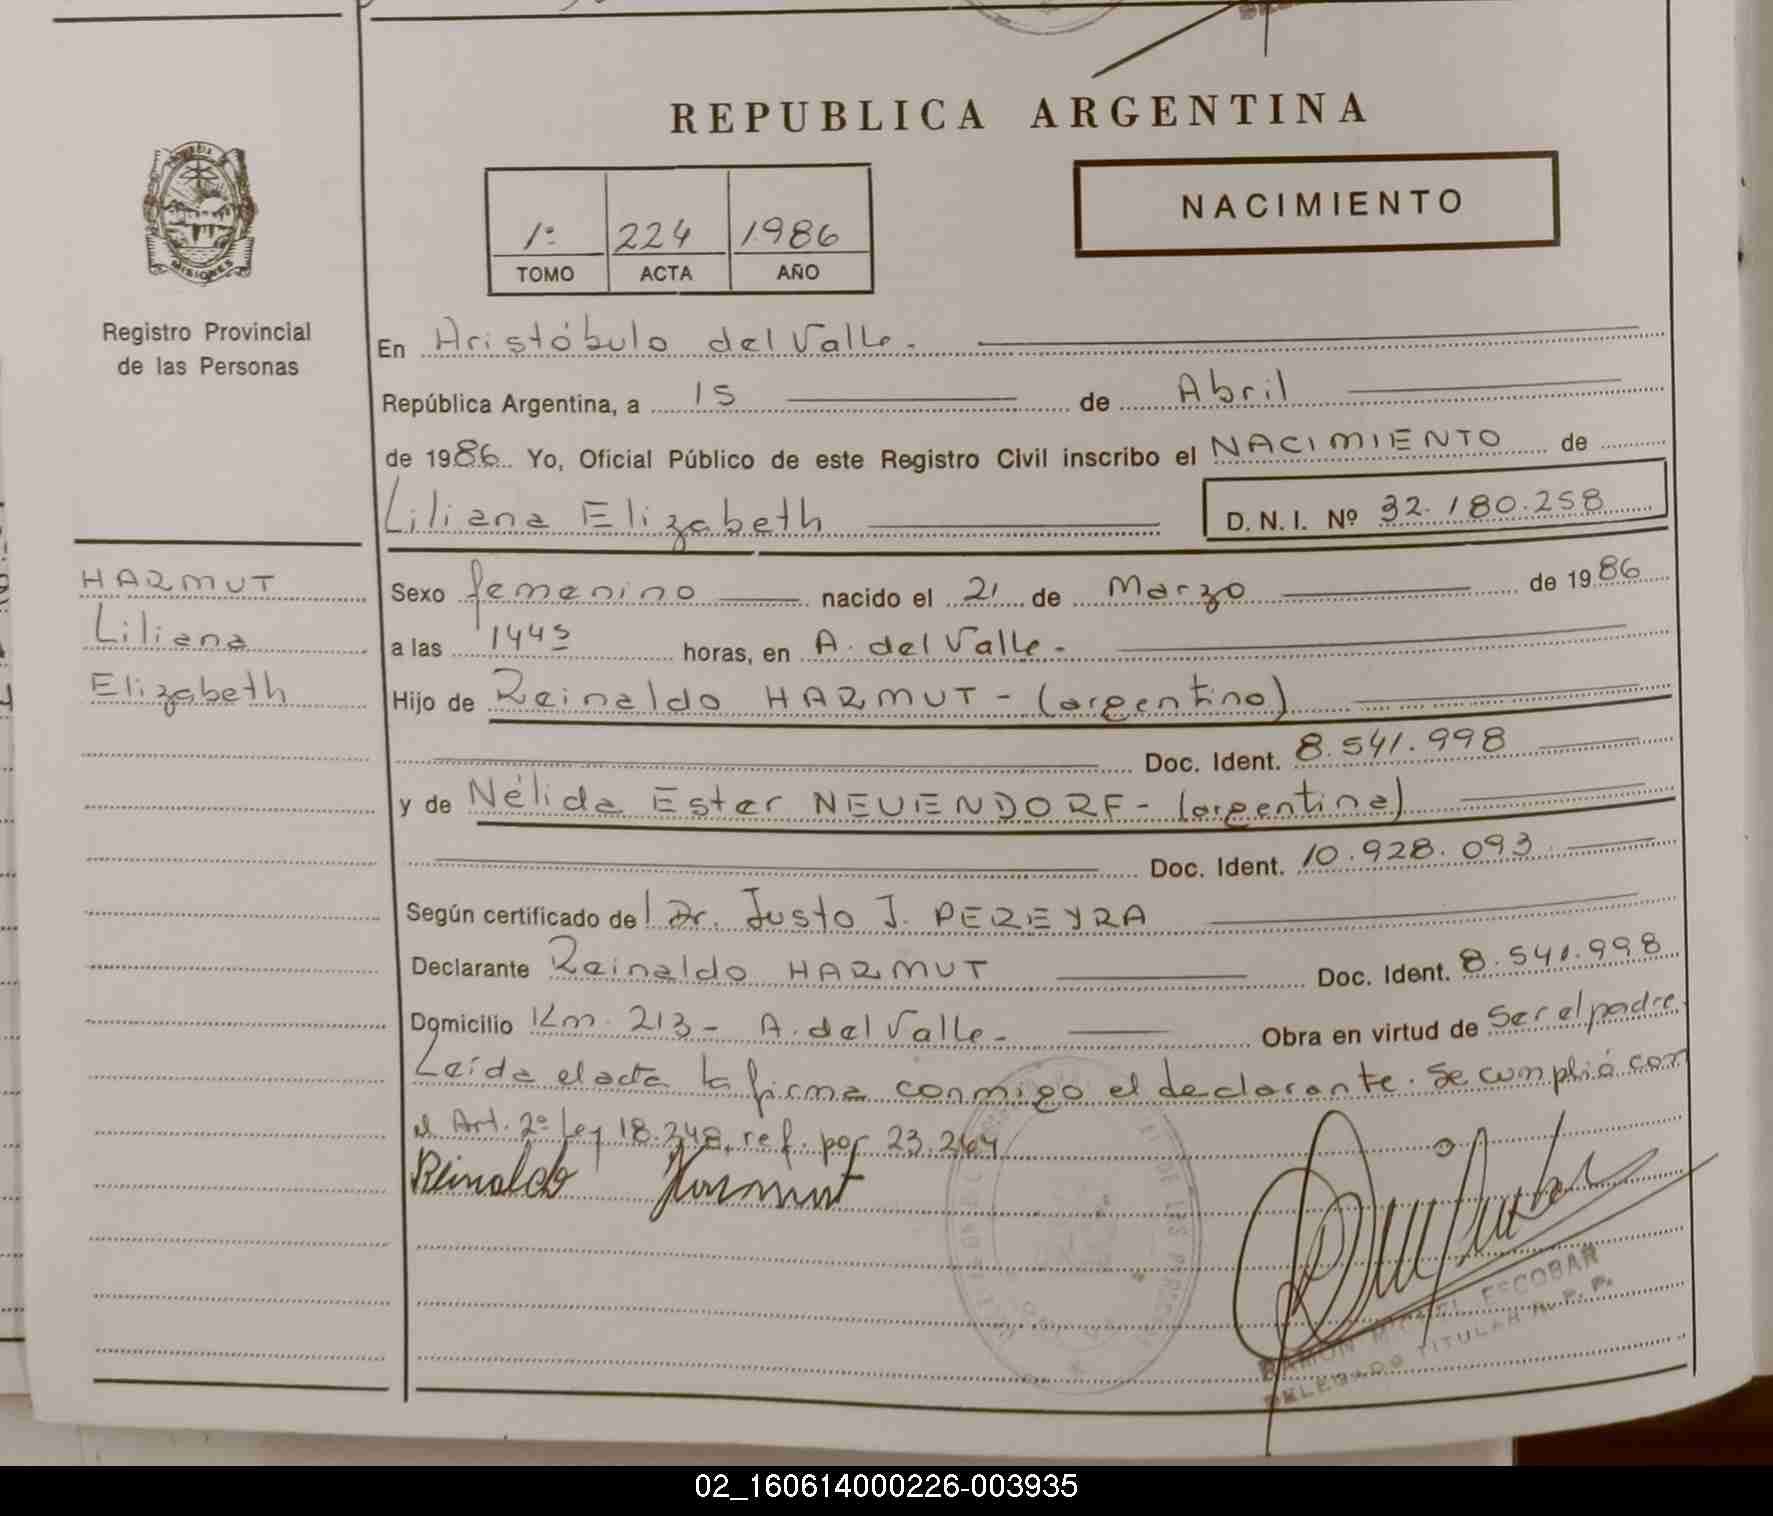 REPUBLICA ARGENTINA
NACIMIENTO
1º 224 1986
TOMO ACTA AÑO
MISIONES
Registro Provincial
de las Personas
En Aristóbulo del Valle.
República Argentina, a 15 de Abril
de 1986 Yo, Oficial Público de este Registro Civil inscribo el NACIMIENTO de
Liliana Elizabeth D. N. I. Nº 32.180.258
HARMUT
Liliana
Elizabeth
Sexo femenino nacido el 21 de Marzo de 1986
a las 1445 horas, en A. del Valle.
Hijo de Reinaldo HARMUT - (argentino)
Doc. Ident. 8.541.998
y de Nélida Ester NEUENDORF - (argentina)
Doc. Ident. 10.928.093
Según certificado del Dr. Justo J. PEREYRA
Declarante Reinaldo HARMUT Doc. Ident. 8.541.998
Domicilio Km. 213 - A. del Valle - Obra en virtud de Ser el padre.
Leída el acta la firma conmigo el declarante. Se cumplió con
el Art. 2º Ley 18.248, ref. por 23.264
Reinaldo Harmut
RAMON MIGUEL ESCOBAR
DELEGADO TITULAR R. P. P.
02_160614000226-003935